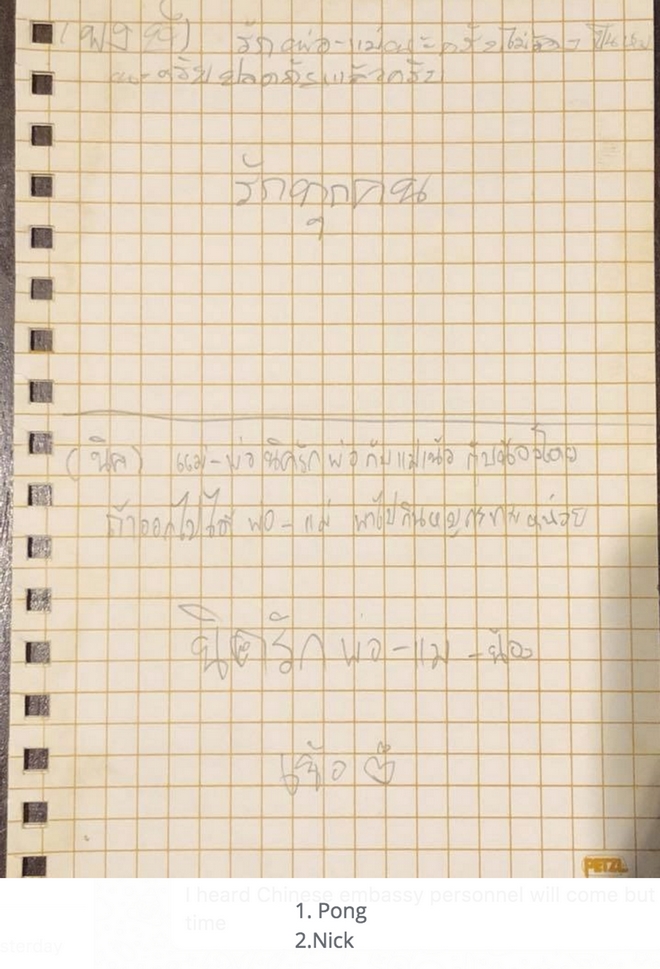 รักพ่อ-แม่นะครับไม่ต้องเป็นห่วง
นะครับปลอดภัยแล้วครับ
รักทุกคน
(นิค) แม่-พ่อ นิครักพ่อกับแม่เน้อ กับน้องโตย
ถ้าออกไปได้ พ่อ-แม่ พาไปกินหมูกระทะหน่อย
นิครักพ่อ-แม่-น้อง
เน้อ
PETZL
I heard Chinese embassy personnel will come but
time
sterday
1. Pong
2.Nick